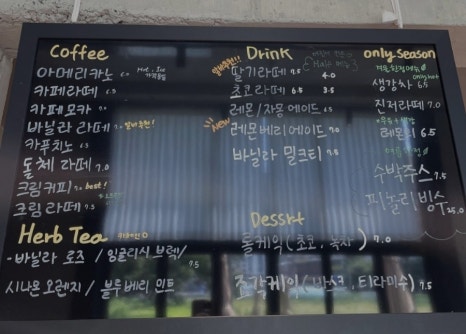 Coffee
아메리카노 6.0 Hot, Ice
카페라떼 6.5
카페모카 7.0
바닐라 라떼 7.0
카푸치노 6.5
돌체 라떼 7.0
크림커피 7.0 best!
크림라떼 7.5
Herb Tea
- 바닐라 로즈 / 잉글리시 브렉/ 7.5
시나몬 오렌지 / 블루베리 민트
Drink
딸기라떼 7.5 4.0
초코라떼 6.5 3.5
레몬/자몽 에이드 6.5
New
레몬베리에이드 7.0
바닐라 밀크티 7.5
Dessrt
롤케익 (초코, 녹차) 7.0
조각케익 (바스크, 티라미수) 7.5
only season
생강차 6.5
진저라떼 7.0
레몬티 6.5
수박주스 7.5
피놀리빙수 25.0